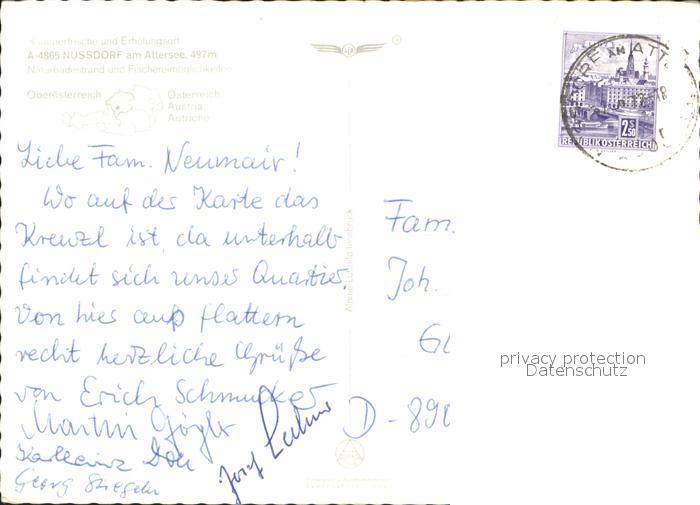 Sommerfrische und Erholungsort
A-4865 NUSSDORF am Attersee, 497m
Naturbadestrand und Fischereimöglichkeiten
Oberösterreich
Österreich
Austria
Autriche
Liebe Fam. Neumair!
Wo auf der Karte das
Kreuzl ist, da unterhalb
findet sich unser Quartier.
Von hier auß flattern
recht herzliche Grüße
von Erich Schmucker
Martin Gögler
Karlheinz
Georg
Josef
Fam.
Joh.
D - 890
2S50
REPUBLIK ÖSTERREICH
AM ATT
privacy protection
Datenschutz